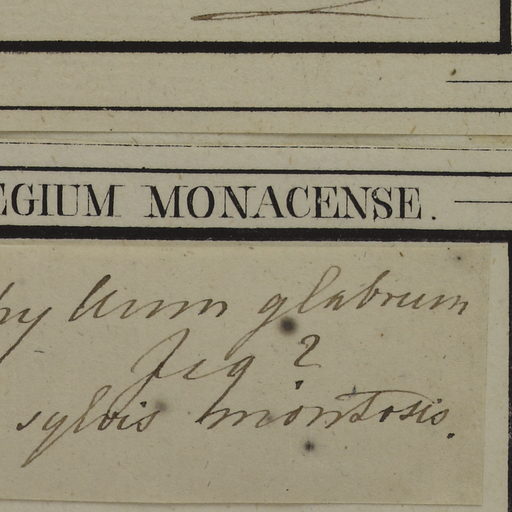 EGIUM MONACENSE.
hyllum glabrum
Jcq ?
sylvis montosis.